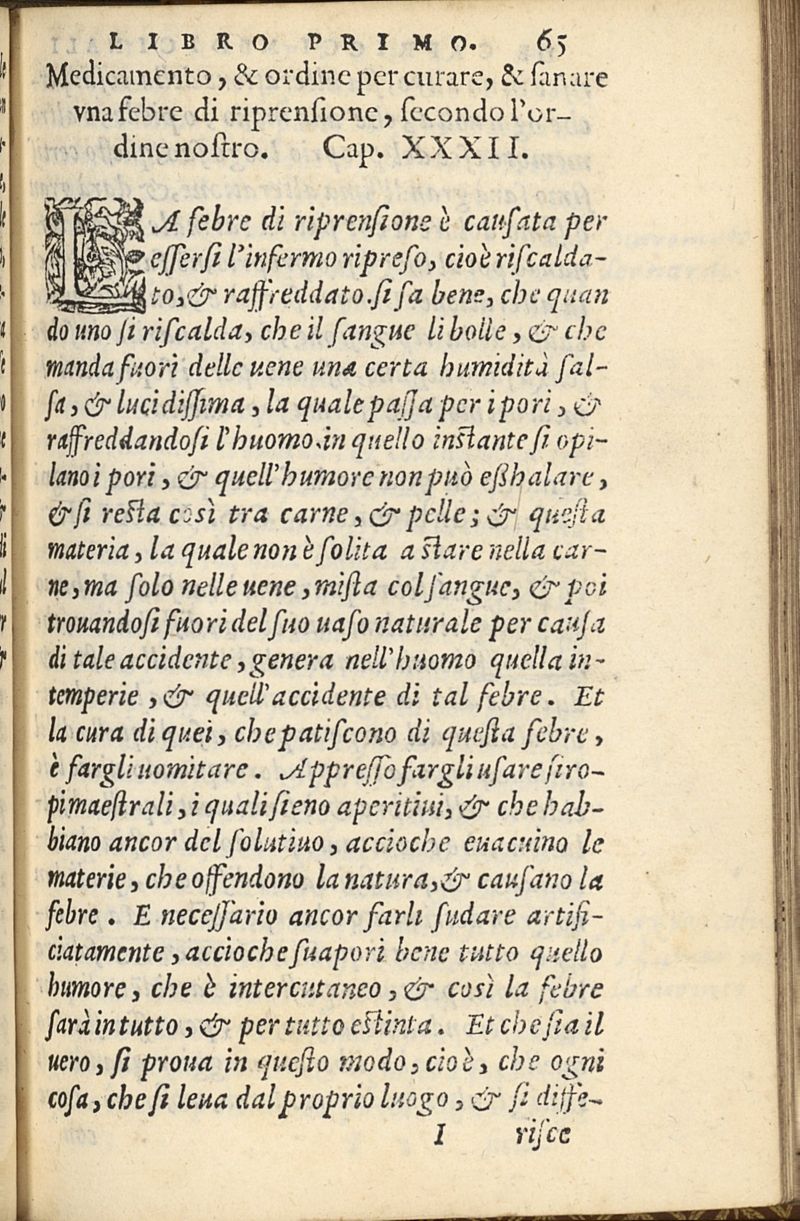 LIBRO PRIMO. 65
Medicamento, & ordine per curare, & sanare
vna febre di riprensione, secondo l'or-
dine nostro. Cap. XXXII.
LA febre di riprensione è causata per
essersi l'infermo ripreso, cioè riscalda-
to, & raffreddato. si sa bene, che quan
do uno si riscalda, che il sangue li bolle, & che
manda fuori delle uene una certa humidità sal-
sa, & lucidissima, la quale passa per i pori, &
raffreddandosi l'huomo in quello instante si opi-
lano i pori, & quell'humore non può eßhalare,
& si resta così tra carne, & pelle; & questa
materia, la quale non è solita a stare nella car-
ne, ma solo nelle uene, mista col sangue, & poi
trouandosi fuori del suo uaso naturale per causa
di tale accidente, genera nell'huomo quella in-
temperie, & quell'accidente di tal febre. Et
la cura di quei, che patiscono di questa febre,
è fargli uomitare. Appresso fargli usare siro-
pi maestrali, i quali sieno aperitiui, & che hab-
biano ancor del solutiuo, accioche euacuino le
materie, che offendono la natura, & causano la
febre. E necessario ancor farli sudare artifi-
ciatamente, accioche suapori bene tutto quello
humore, che è intercutaneo, & così la febre
sarà in tutto, & per tutto estinta. Et che sia il
uero, si proua in questo modo, cioè, che ogni
cosa, che si leua dal proprio luogo, & si diffe-
I risce